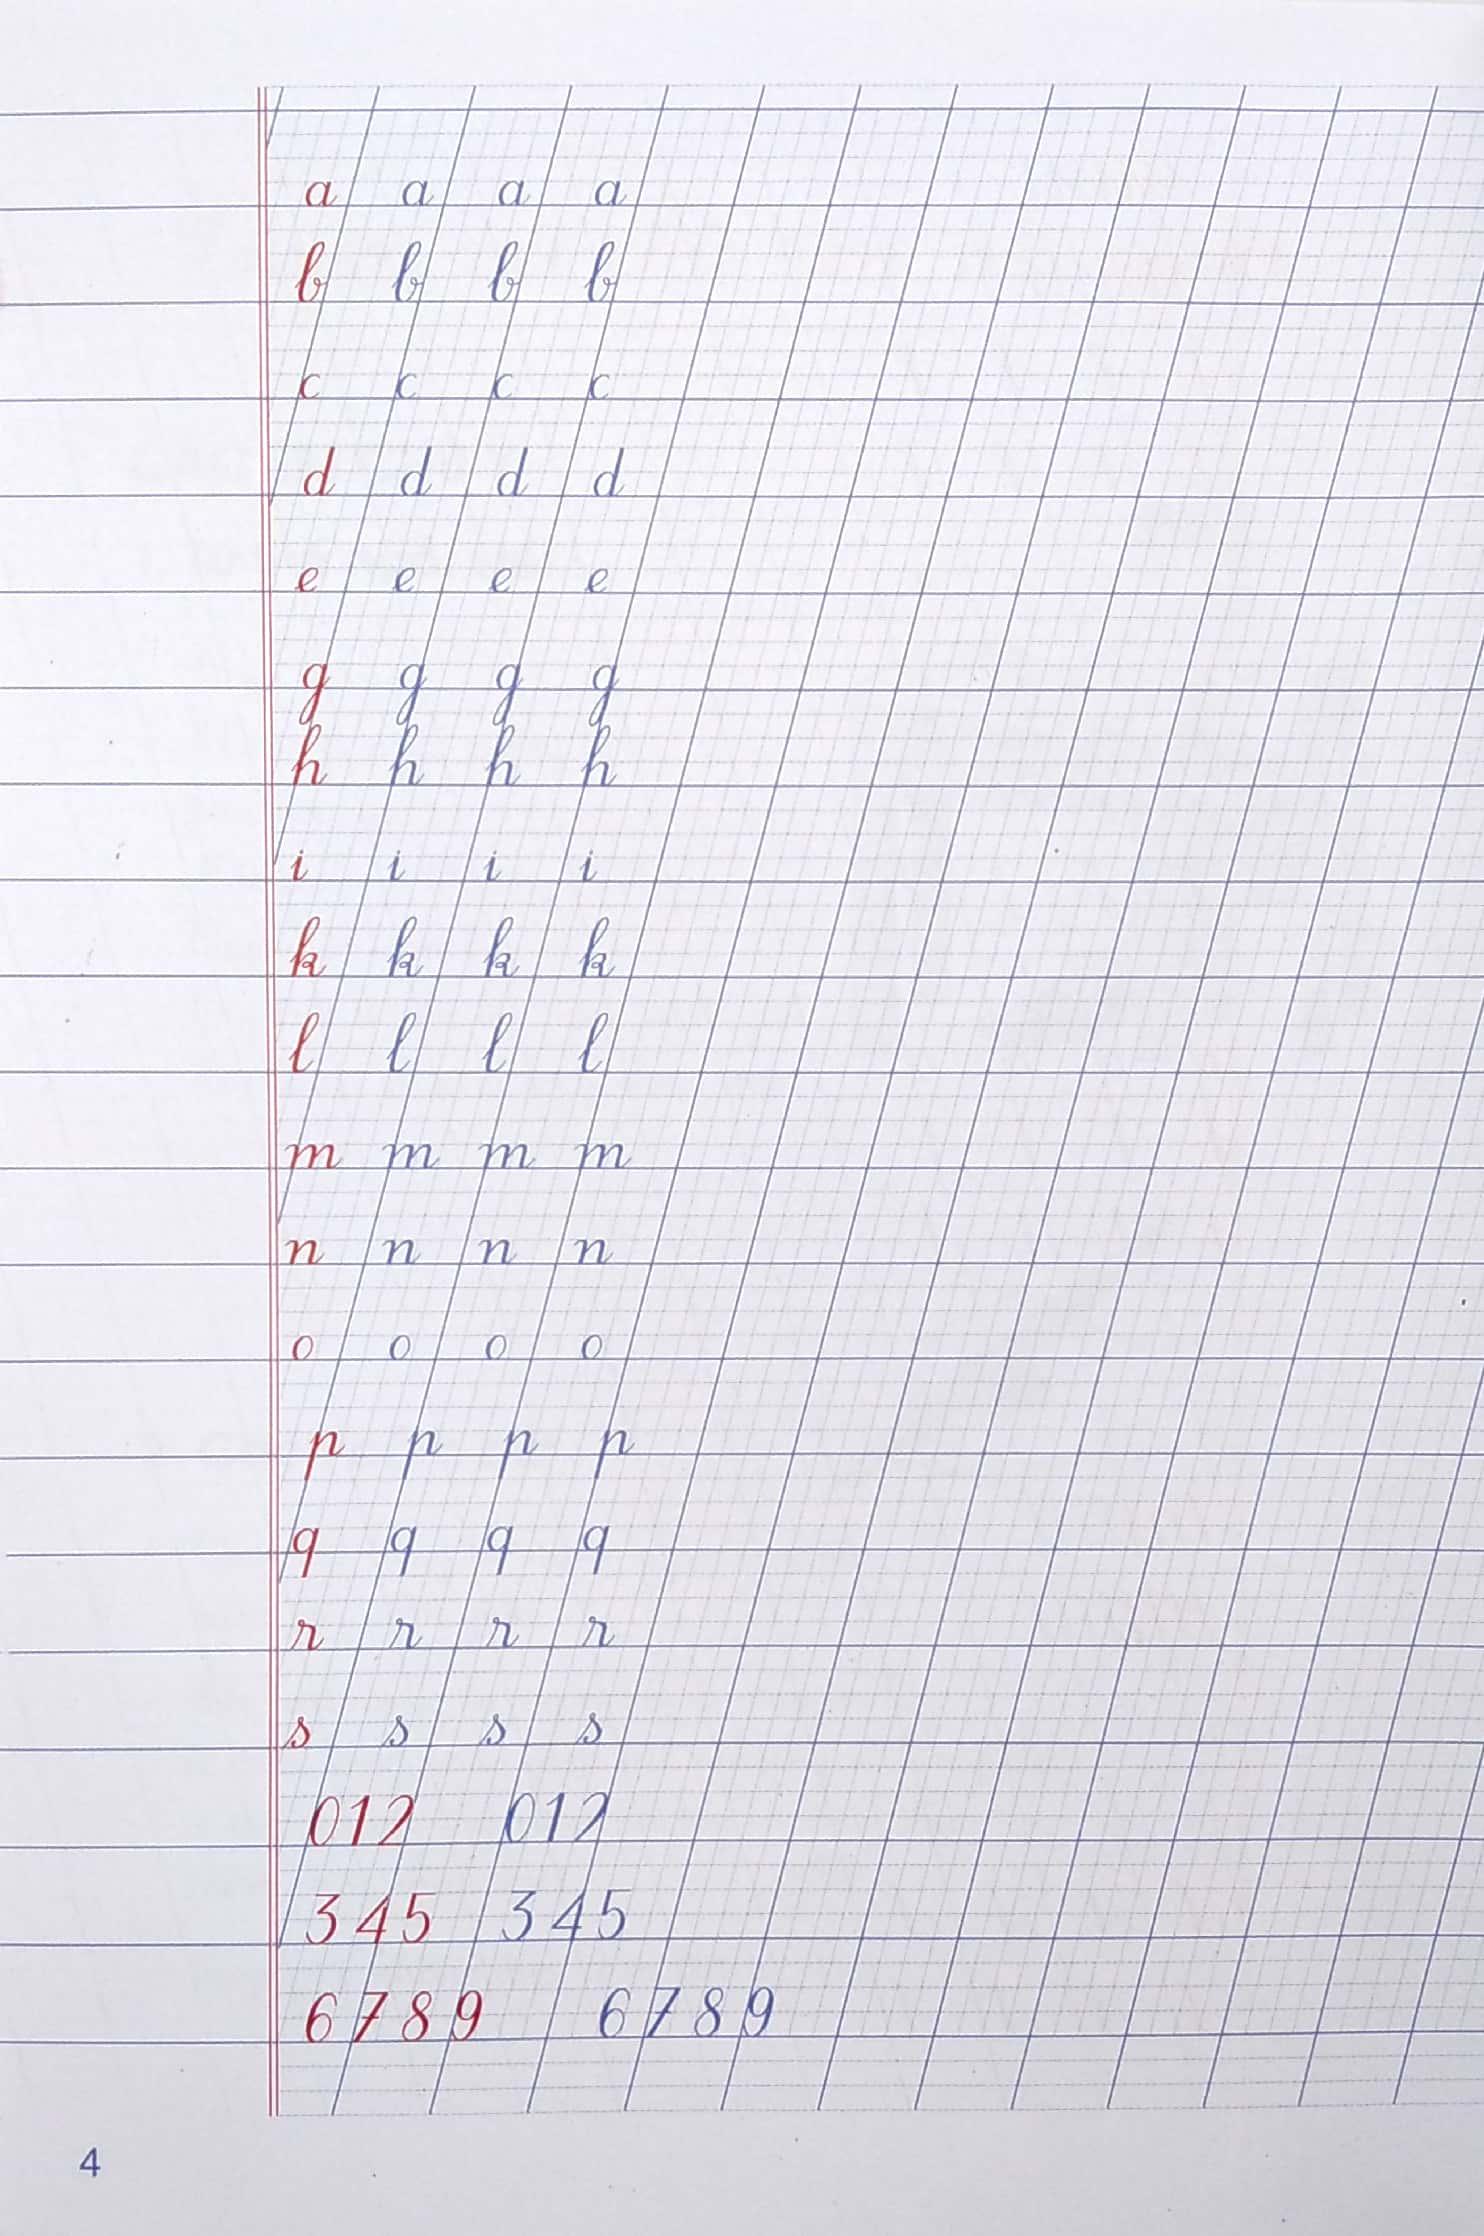 a a a a
b b b b
c c c c
d d d d
e e e e
g g g g
h h h h
i i i i
k k k k
l l l l
m m m m
n n n n
o o o o
p p p p
q q q q
r r r r
s s s s
012 012
345 345
6789 6789
4